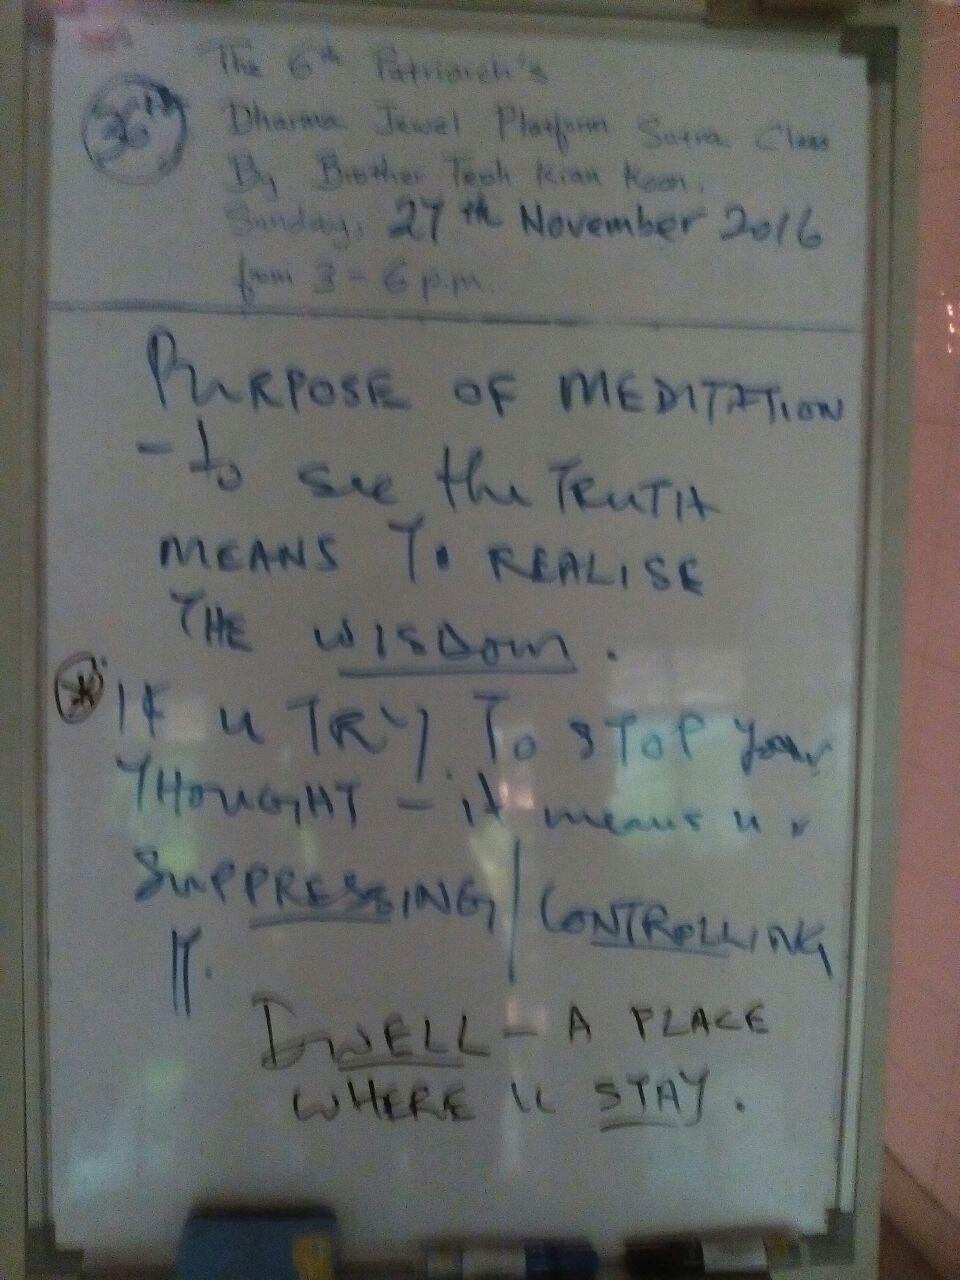 36th
The 6th Patriarch's
Dharma Jewel Platform Sutra Class
By Brother Teoh Kian Koon,
Sunday, 27th November 2016
from 3 - 6 p.m.
PURPOSE OF MEDITATION
- to see the TRUTH
MEANS To REALISE
THE WISDOM.
* If u TRY To STOP your
THOUGHT - it means u r
SUPPRESSING / CONTROLLING
IT.
DWELL - A PLACE
WHERE U STAY.